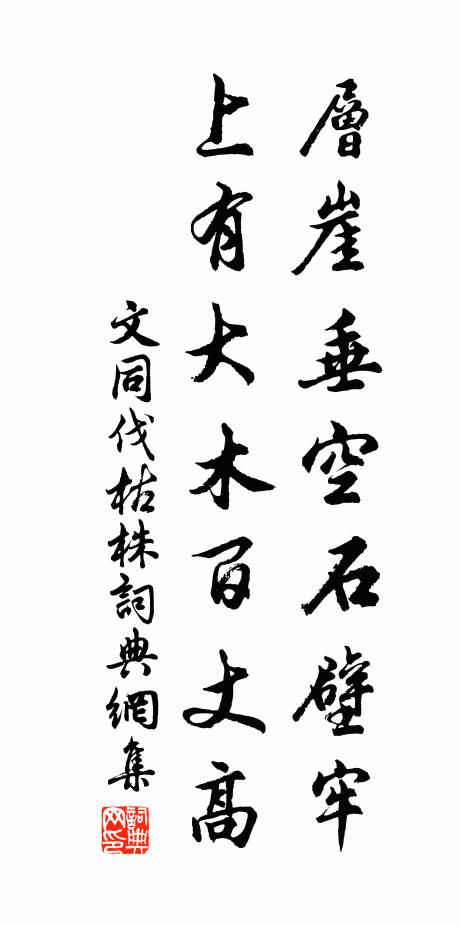 層崖垂空石壁牢
上有大木百丈高
文同伐枯株詞典網集
詞典
网印